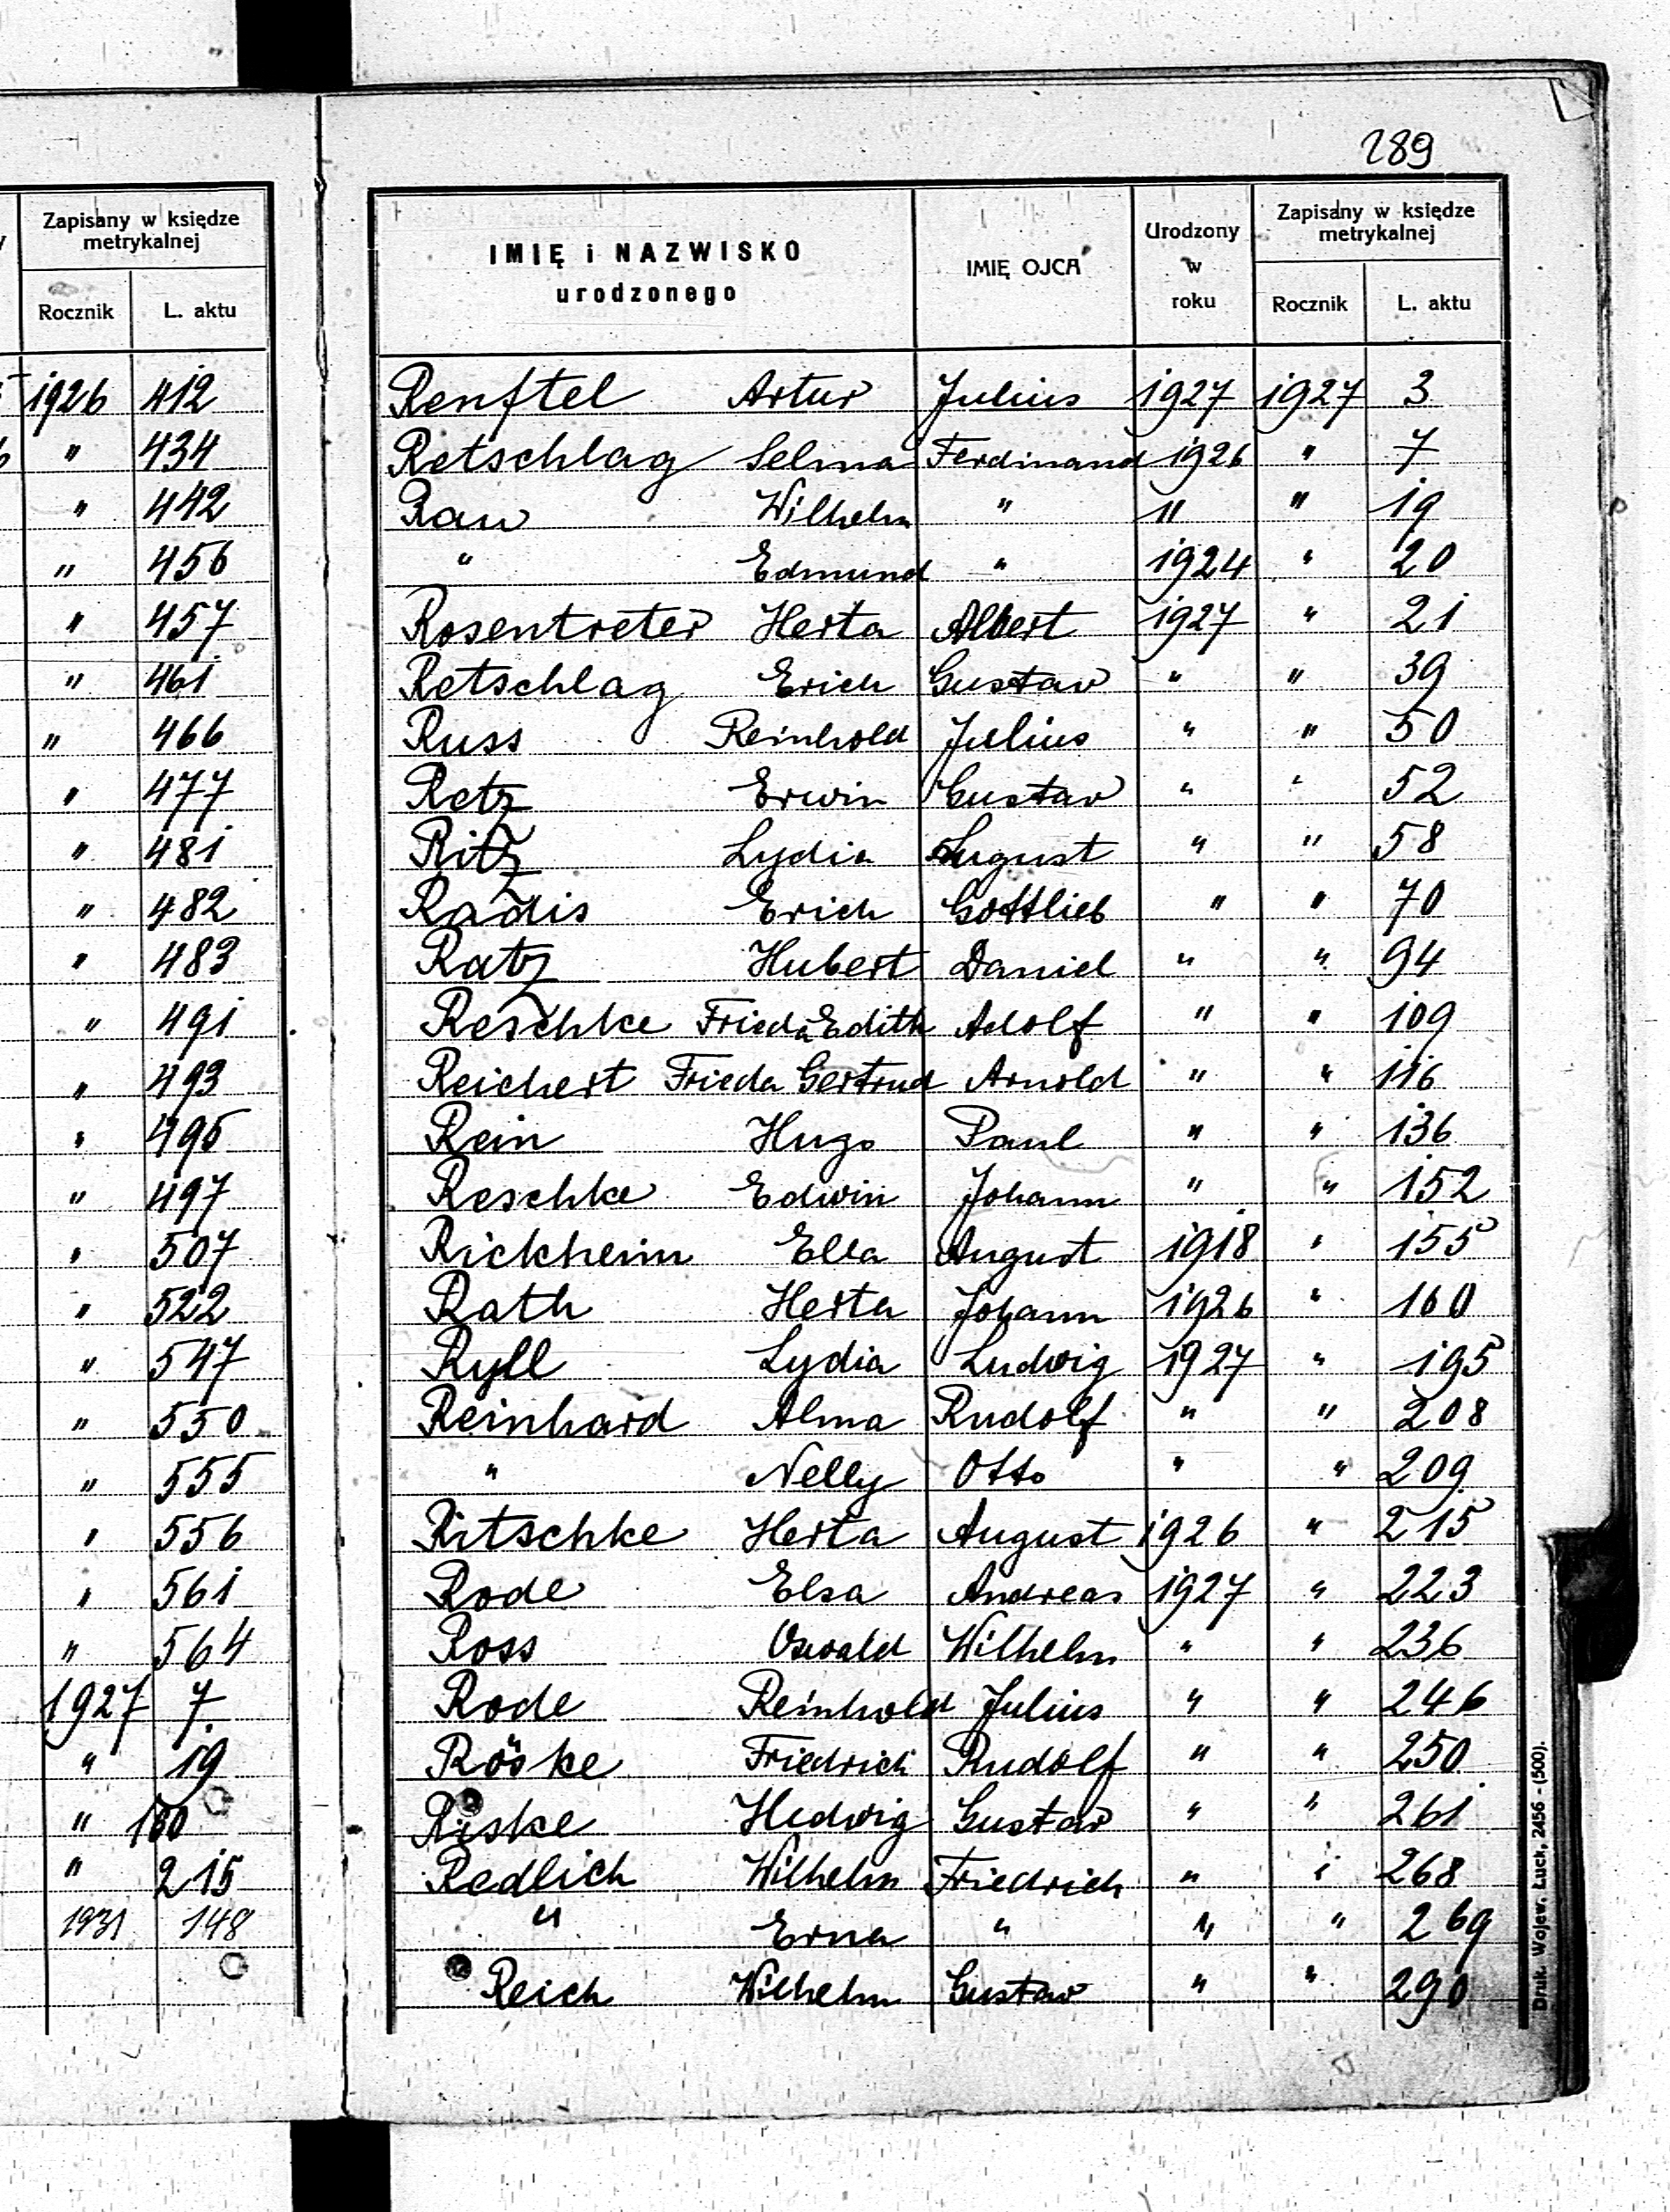 289
Zapisany w księdze
metrykalnej
Rocznik L. aktu
1926 412
" 434
" 442
" 456
" 457
" 461
" 466
" 477
" 481
" 482
" 483
" 491
" 493
" 495
" 497
" 507
" 522
" 547
" 550
" 555
" 556
" 561
" 564
1927 7
" 19
" 160
" 215
1931 148
IMIĘ i NAZWISKO
urodzonego
IMIĘ OJCA
Urodzony
w
roku
Zapisany w księdze
metrykalnej
Rocznik L. aktu
Renftel Artur Julius 1927 1927 3
Retschlag Selma Ferdinand 1926 " 7
Rau Wilhelm " " " 19
" Edmund " 1924 " 20
Rosentreter Herta Albert 1927 " 21
Retschlag Erich Gustav " " 39
Russ Reinhold Julius " " 50
Retz Erwin Gustav " " 52
Ritz Lydia August " " 58
Radis Erich Gottlieb " " 70
Ratz Hubert Daniel " " 94
Reschke Frieda Edith Adolf " " 109
Reichert Frieda Gertrud Arnold " " 116
Rein Hugo Paul " " 136
Reschke Edwin Johann " " 152
Rickheim Ella August 1918 " 155
Rath Herta Johann 1926 " 160
Ryll Lydia Ludwig 1927 " 195
Reinhard Alma Rudolf " " 208
" Nelly Otto " " 209
Ritschke Herta August 1926 " 215
Rode Elsa Andreas 1927 " 223
Ross Oswald Wilhelm " " 236
Rode Reinhold Julius " " 246
Röske Friedrich Rudolf " " 250
Riske Hedwig Gustav " " 261
Redlich Wilhelm Friedrich " " 268
" Erna " " " 269
Reich Wilhelm Gustav " " 290
Druk. Wojew. Łuck, 2456 - (500).